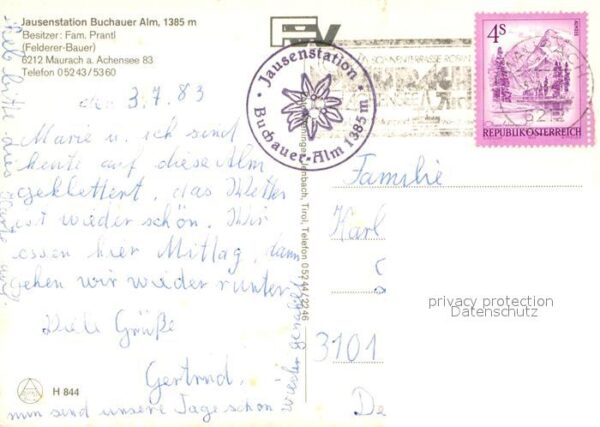 Jausenstation Buchauer Alm, 1385 m
Besitzer: Fam. Prantl
(Felderer-Bauer)
6212 Maurach a. Achensee 83
Telefon 05243/5360
den 3.7.83
Marie u. ich sind
heute auf diese Alm
geklettert, das Wetter
ist wieder schön. Wir
essen hier Mittag, dann
gehen wir wieder runter
Viele Grüße
Gertrud.
nun sind unsere Tage schon
wieder gezählt
heb bitte dies Karte
H 844
Jenbach, Tirol, Telefon 05244/2246
Jausenstation
Buchauer-Alm 1385 m
4S
REPUBLIK ÖSTERREICH
Familie
Karl
3101
privacy protection
Datenschutz